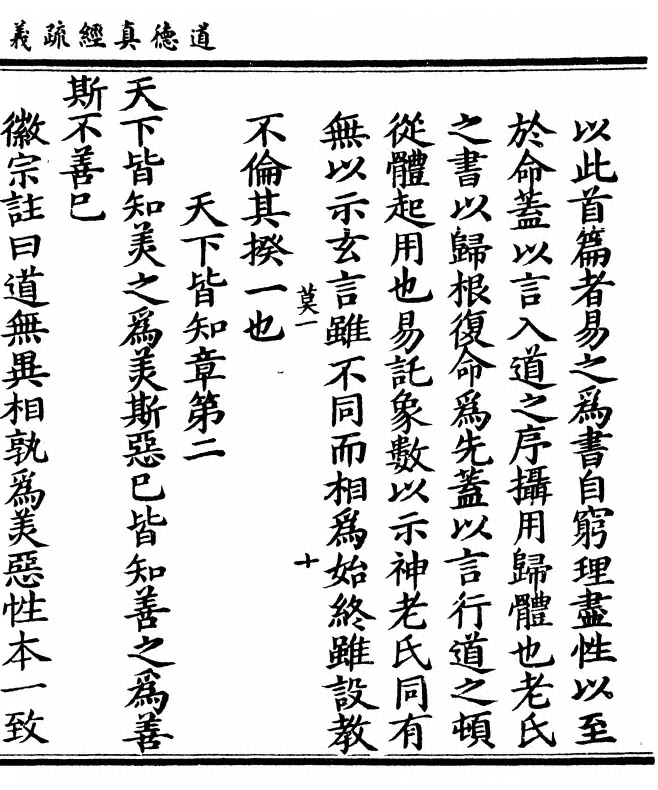 道德真經疏義
以此首篇者易之爲書自窮理盡性以至
於命蓋以言入道之序攝用歸體也老氏
之書以歸根復命爲先蓋以言行道之頓
從體起用也易託象數以示神老氏同有
無以示玄言雖不同而相爲始終雖設教
莫一
十
不倫其揆一也
天下皆知章第二
天下皆知美之爲美斯惡已皆知善之爲善
斯不善已
徽宗註曰道無異相孰爲美惡性本一致